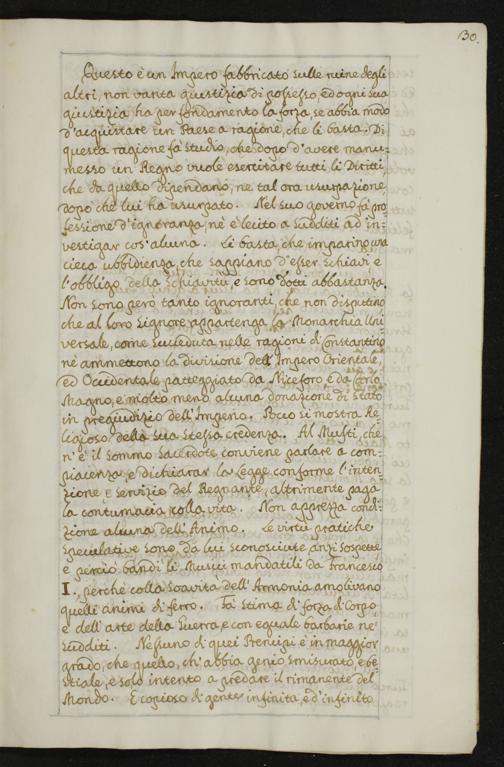 130.
Questo è un Impero fabbricato sulle ruine degli
altri, non vanta giustizia di possesso, ed ogni sua
giustizia ha per fondamento la forza, se abbia modo
d'acquistare un Paese a ragione, che li basta. Di
questa ragione fa studio, che dopo d'avere manu-
messo un Regno vuole esercitare tutti li Diritti
che da quello dipendano, ne tal ora usurpazione,
dopo che lui ha usurpato. Nel suo governo fa pro-
fessione d'ignoranza, nè è lecito a Sudditi ad in-
vestigar cos'alcuna. Li basta, che imparino una
cieca ubbidienza, che sappiano d'esser Schiavi e
l'obbligo della Schiavitù, e sono dotti abbastanza.
Non sono però tanto ignoranti, che non disputino
che al loro Signore appartenga la Monarchia Uni-
versale, come succeduta nelle ragioni di Constantino
nè ammettono la divisione dell'Impero Orientale,
ed Occidentale patteggiato da Niceforo è da Carlo
Magno, e molto meno alcuna donazione di Stato
in pregiudizio dell'Imperio. Pocco si mostra Re-
ligioso della sua stessa credenza. Al Muftì, che
n'è il Sommo Sacerdote conviene parlare a com-
piacenza, e dichiarar la Legge conforme l'inten-
zione, e servizio del Regnante, altrimente paga
la contumacia colla vita. Non apprezza condi-
zione alcuna dell'Animo. Le virtù pratiche
speculative sono da lui sconosciute anzi sospette
e perciò bandì li Musici mandatili da Francesco
I., perchè colla soavità dell'Armonia amolivano
quelli animi di ferro. Fa stima di forza di Corpo
e dell'arte della Guerra, e con eguale barbarie ne'
Sudditi. Nessuno di quei Prencipi è in maggior
grado, che quello, ch'abbia genio smisurato, e be-
stiale, e solo intento a predare il rimanente del
Mondo. È copioso di gente infinita, e d'infinito